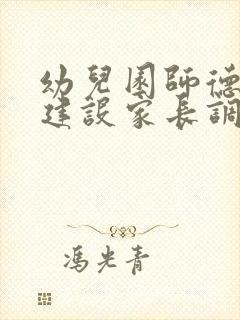 幼兒園師德
建設家長調
馮光青